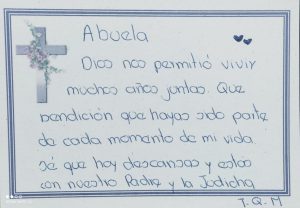 Abuela
Dios nos permitió vivir
muchos años juntas. Que
bendición que hayas sido parte
de cada momento de mi vida
sé que hoy descansas y estás
con nuestro Padre y la Judicha
T.Q.M